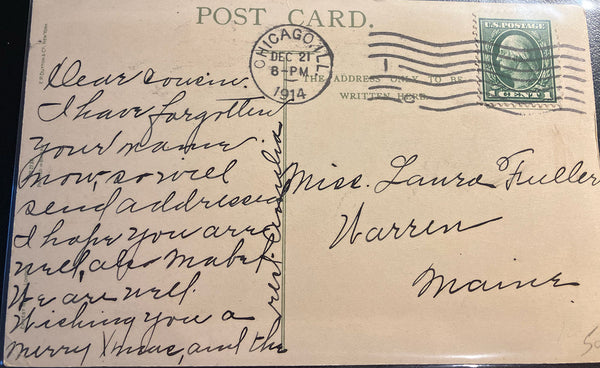 POST CARD.
CHICAGO, ILL.
DEC 21
8-PM
1914
U.S. POSTAGE
1 CENT 1
THE ADDRESS ONLY TO BE
WRITTEN HERE.
Dear Cousin.
I have forgotten
your name
now, so will
send addressed
I hope you are
well, also Mabel
We are well.
Wishing you a
merry Xmas, and the
rest
Miss. Laura Fuller
Warren
Maine